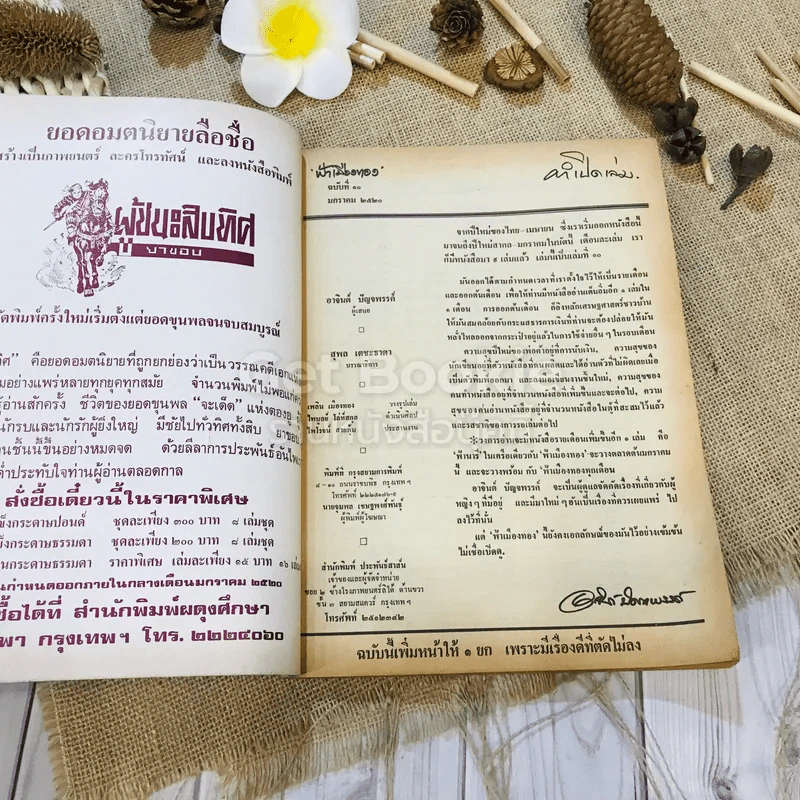 ยอดอมตนิยายลือชื่อ
สร้างเป็นภาพยนตร์ ละครโทรทัศน์ และลงหนังสือพิมพ์
ผู้ชนะสิบทิศ
ยาขอบ
จัดพิมพ์ครั้งใหม่เริ่มตั้งแต่ยอดขุนพลจนจบสมบูรณ์
ทิศ" คือยอดอมตนิยายที่ถูกยกย่องว่าเป็นวรรณคดีเอก
มอย่างแพร่หลายทุกยุคทุกสมัย จำนวนพิมพ์ไม่พอแก่
ผู้อ่านสักครั้ง ชีวิตของยอดขุนพล "จะเด็ด" แห่งตองอู
นักรบและนักรักผู้ยิ่งใหญ่ มีชัยไปทั่วทิศทั้งสิบ ยาขอบ
วนชั้นนี้ขึ้นอย่างหมดจด ด้วยลีลาการประพันธ์อันไพเราะ
ค่ำประทับใจท่านผู้อ่านตลอดกาล
สั่งซื้อเดี๋ยวนี้ในราคาพิเศษ
ข็งกระดาษปอนด์ ชุดละเพียง ๓๐๐ บาท ๘ เล่มชุด
ข็งกระดาษธรรมดา ชุดละเพียง ๒๐๐ บาท ๘ เล่มชุด
นกระดาษธรรมดา ราคาพิเศษ เล่มละเพียง ๑๕ บาท ๑๖ เล่ม
นกำหนดออกภายในกลางเดือนมกราคม ๒๕๒๐
ซื้อได้ที่ สำนักพิมพ์ผดุงศึกษา
พา กรุงเทพฯ โทร. ๒๒๒๔๐๖๐
"ฟ้าเมืองทอง"
ฉบับที่ ๑๐
มกราคม ๒๕๒๐
คำเปิดเล่ม.
อาจินต์ ปัญจพรรค์
ผู้เสนอ
สุพล เตชะธาดา
บรรณาธิการ
เพลิน เมืองทอง วางรูปเล่ม
ไพบูลย์ ไล่ห์สกุล ดำเนินศิลป
ไพโรจน์ สายกัน ประสานงาน
พิมพ์ที่ กรุงสยามการพิมพ์
๔-๑๐ ถนนราชบพิธ กรุงเทพฯ
ผู้พิมพ์ผู้โฆษณา
สำนักพิมพ์ ประพันธ์สาส์น
เจ้าของและผู้จัดจำหน่าย
ซอย ๒ ข้างโรงภาพยนตร์ลิโด้ ด้านขวา
ชั้น ๓ สยามสแควร์ กรุงเทพฯ
โทรศัพท์ ๒๕๑๒๓๔๒
จากปีใหม่ของไทย-เมษายน ซึ่งเราเริ่มออกหนังสือนี้
มาจนถึงปีใหม่สากล-มกราคมในบัดนี้ เดือนละเล่ม เรา
ก็มีหนังสือมา ๙ เล่มแล้ว เล่มนี้เป็นเล่มที่ ๑๐
มันออกได้ตามกำหนดเวลาที่เราตั้งใจไว้ให้เป็นรายเดือน
และออกต้นเดือน เพื่อให้ท่านมีหนังสืออ่านเต็มอิ่มอีก ๑ เล่มใน
๑ เดือน การออกต้นเดือน ก็ถือหลักเศรษฐศาสตร์ชาวบ้าน
ให้มันสมคล้อยกับกระแสธารการเงินที่ท่านจะต้องปล่อยให้มัน
หลั่งไหลออกจากกระเป๋าอยู่แล้วในการใช้จ่ายอื่นๆในรอบเดือน
ความสุขปีใหม่ของพ่อค้าอยู่ที่การนับเงิน, ความสุขของ
คนทำหนังสืออยู่ที่จำนวนพิมพ์ที่เพิ่มขึ้นและจะต่อไป, ความ
สุขของคนอ่านหนังสืออยู่ที่จำนวนหนังสือในตู้ที่สะสมไว้แล้ว
และรสชาติการรอเล่มต่อไป
* วงการอาจะมีหนังสือรายเดือนเพิ่มขึ้นอีก ๑ เล่ม คือ
'ฟ้านารี' ในเครือเดียวกับ 'ฟ้าเมืองทอง' จะวางตลาดต้นมกราคม
นี้ และจะวางพร้อม กับ 'ฟ้าเมืองทองทุกเดือน
อาจินต์ ปัญจพรรค์ จะเป็นผู้ดูแลจัดคัดเรื่องที่เกี่ยวกับผู้
หญิงๆที่มีอยู่ และมีมาใหม่ๆอันเป็นเรื่องที่ควรเผยแพร่ ไป
ลงไว้ที่นั้น
แต่ 'ฟ้าเมืองทอง' นี้ยังคงเอกลักษณ์ของมันไว้อย่างเข้มข้น
ไม่เชื่อเปิดดู.
อาจินต์ ปัญจพรรค์
ฉบับนี้เพิ่มหน้าให้ ๑ ยก เพราะมีเรื่องดีที่ตัดไม่ลง
Get Books
ร้านหนังสือมือสอง